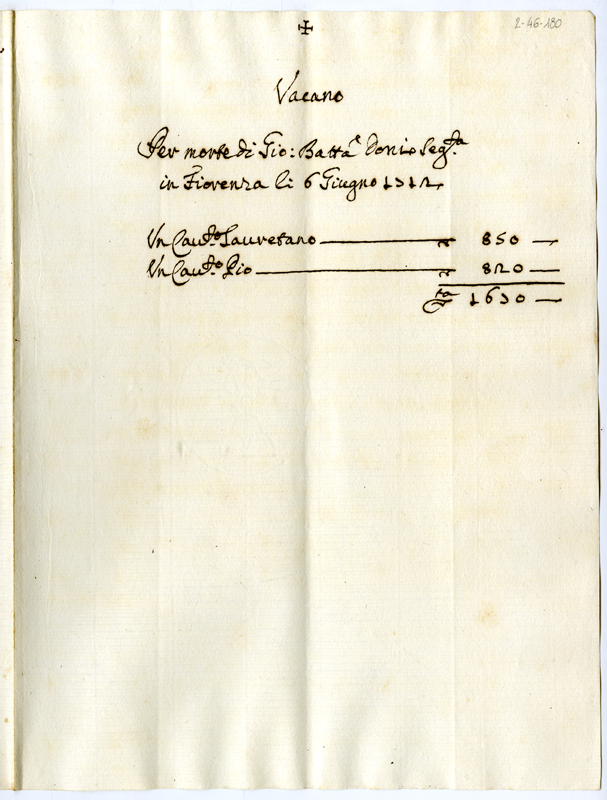 ✠
2-46-180
Vacano
Per morte di Gio: Batta Doni seg.ta
in Fiorenza li 6 Giugno 1712
Un Cau.to Lauretano — 850 —
Un Cau.to Pio — 820 —
1670 —